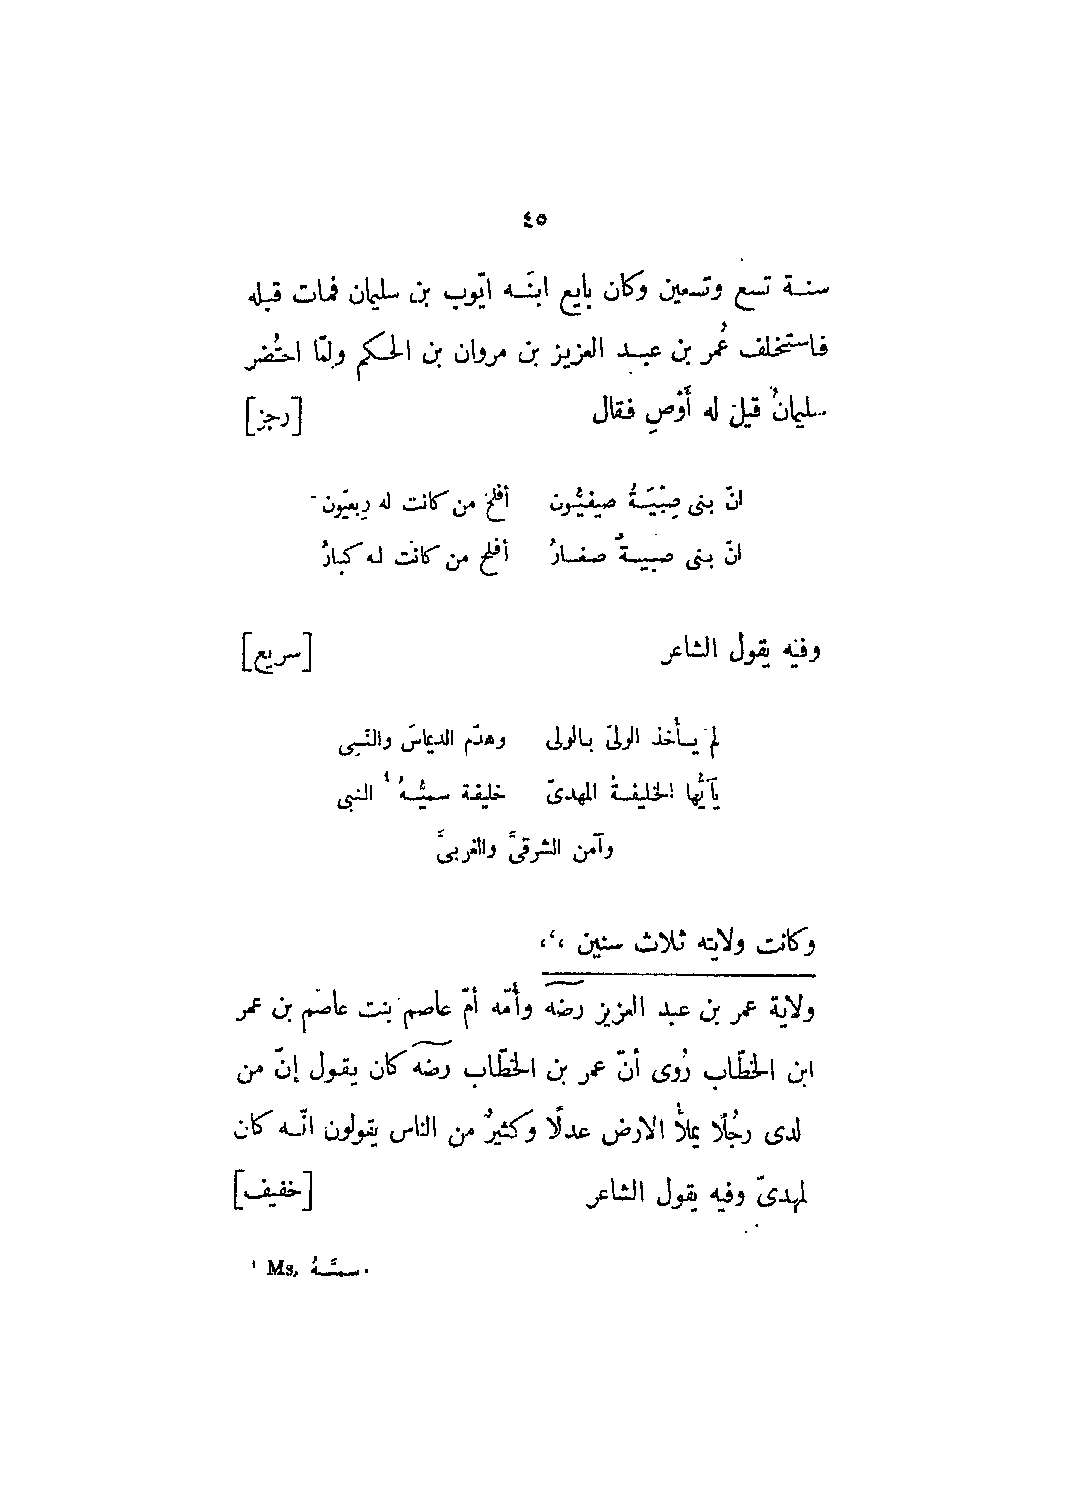 ٤٥
سنة تسع وتسعين وكان بايع ابنَه ايّوب بن سليمان فمات قبله
فاستخلف عُمر بن عبد العزيز بن مروان بن الحكم ولمّا احتُضر
سليمانُ قيل له أَوْصِ فقال [رجز]
انّ بنى صِبْيَةُ صيفيُّون أفلح من كانت له رِبعيّون
انّ بنى صبيةٌ صغارُ أفلح من كانت له كبارُ
وفيه يقول الشاعر [سريع]
لم يأخذ الولىّ بالولى وهدّم الديماسَ والنَّبِى
يآيُّها الخليفةُ المهدىّ خليفة سميُّهُ ١ النبى
وآمن الشرقىَّ والغربىَّ
وكانت ولايته ثلاث سنين ،‘،
ولاية عمر بن عبد العزيز رضه وأُمّه أمّ عاصم بنت عاصم بن عمر
ابن الخطّاب رُوى أنّ عمر بن الخطّاب رضه كان يقول إنّ من
لدى رجُلًا يملأُ الارض عدلًا وكثيرٌ من الناس يقولون انّه كان
لمهدىّ وفيه يقول الشاعر [خفيف]
١ Ms. سمتَّهُ.